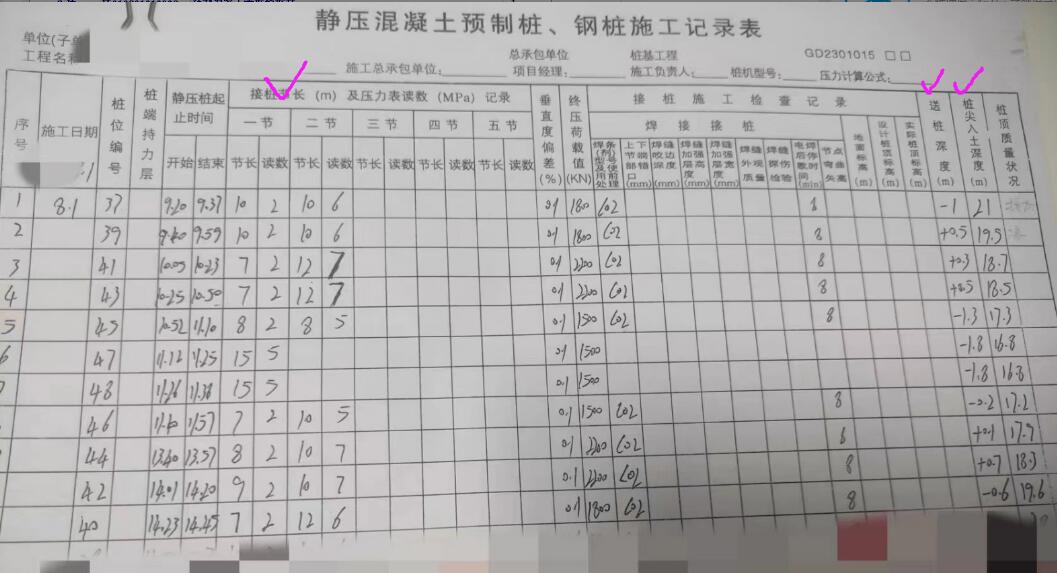 静压混凝土预制桩、钢桩施工记录表
单位(子单
工程名称 施工总承包单位: 总承包单位 项目经理: 桩基工程 施工负责人: 桩机型号: GD2301015 □ □ 压力计算公式:
序号 施工日期 桩位编号 桩端持力层 静压桩起止时间 接桩节长 (m) 及压力表读数 (MPa) 记录 垂直度偏差(%) 终压荷载值(KN) 接桩施工检查记录 送桩深度(m) 桩尖入土深度(m) 桩顶质量状况
一节 二节 三节 四节 五节 焊接接桩
开始 结束 节长 读数 节长 读数 节长 读数 节长 读数 节长 读数 焊条(剂)型号及使用前处理 上下节端部错口(mm) 焊缝咬边深度(mm) 焊缝加强层高度(mm) 焊缝加强层宽度(mm) 焊缝外观质量 焊缝探伤检验 电焊后停歇时间(min) 节点弯曲矢高 地面标高(m) 设计桩顶标高(m) 实际桩顶标高(m)
1 8.1 37 9.20 9.37 10 2 10 6 0.1 1800 CO2 8 -1 21
2 39 9.40 9.59 10 2 10 6 0.1 1800 CO2 8 +0.5 19.5
3 41 10.05 10.23 7 2 12 7 0.1 2200 CO2 8 +0.3 18.7
4 43 10.25 10.50 7 2 12 7 0.1 2200 CO2 8 +0.5 18.5
5 45 10.52 11.10 8 2 8 5 0.1 1500 CO2 8 -1.3 17.3
6 47 11.12 11.25 15 5 0.1 1500 -1.8 16.8
48 11.26 11.38 15 5 0.1 1500 -1.8 16.8
46 11.40 11.57 7 2 10 5 0.1 1500 CO2 8 -0.2 17.2
44 13.40 13.57 8 2 10 7 0.1 2200 CO2 8 +0.1 17.9
42 14.01 14.20 9 2 10 7 0.1 2200 CO2 8 +0.7 18.3
40 14.23 14.45 7 2 12 6 0.1 1800 CO2 8 -0.6 19.6